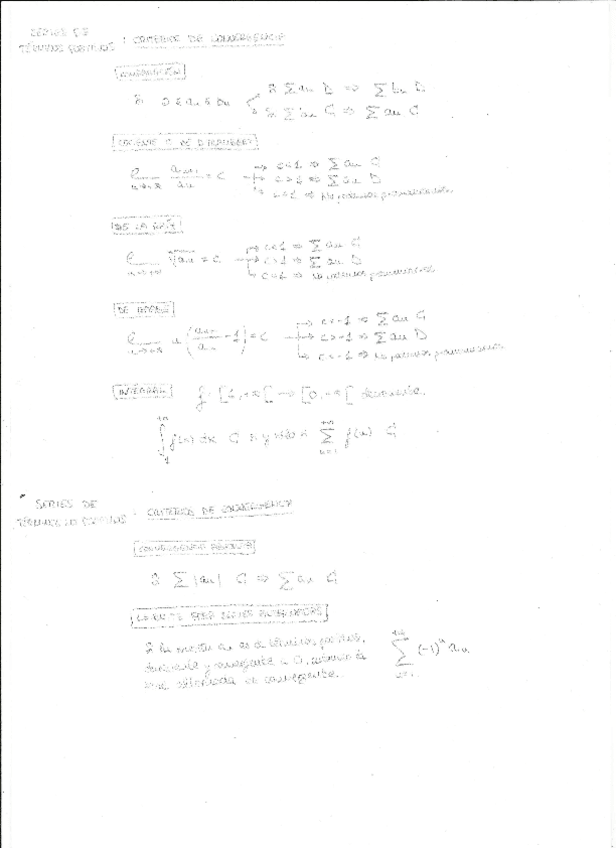 SERIES DE
TÉRMINOS POSITIVOS : CRITERIOS DE CONVERGENCIA
COMPARACIÓN
Si 0 ≤ an ≤ bn
Si Σ an D ⇒ Σ bn D
Si Σ bn C ⇒ Σ an C
COCIENTE O DE D'ALEMBERT
lim n→+∞ an+1/an = c
→ c<1 ⇒ Σ an C
→ c>1 ⇒ Σ an D
→ c=1 ⇒ No podemos pronunciarnos
DE LA RAÍZ
lim n→+∞ ⁿ√an = c
→ c<1 ⇒ Σ an C
→ c>1 ⇒ Σ an D
→ c=1 ⇒ No podemos pronunciarnos
DE RAABE
lim n→+∞ n(an+1/an - 1) = c
→ c<-1 ⇒ Σ an C
→ c>-1 ⇒ Σ an D
→ c=-1 ⇒ No podemos pronunciarnos
INTEGRAL
f: [1,+∞[ → [0,+∞[ decreciente.
∫₁^+∞ f(x) dx C si y sólo si Σ n=1 +∞ f(n) C
SERIES DE
TÉRMINOS NO POSITIVOS : CRITERIOS DE CONVERGENCIA
CONVERGENCIA ABSOLUTA
Si Σ |an| C ⇒ Σ an C
LEIBNITZ PARA SERIES ALTERNADAS
Si la sucesión an es de términos positivos,
decreciente y convergente a 0, entonces la
serie alternada es convergente.
Σ +∞ (-1)ⁿ an